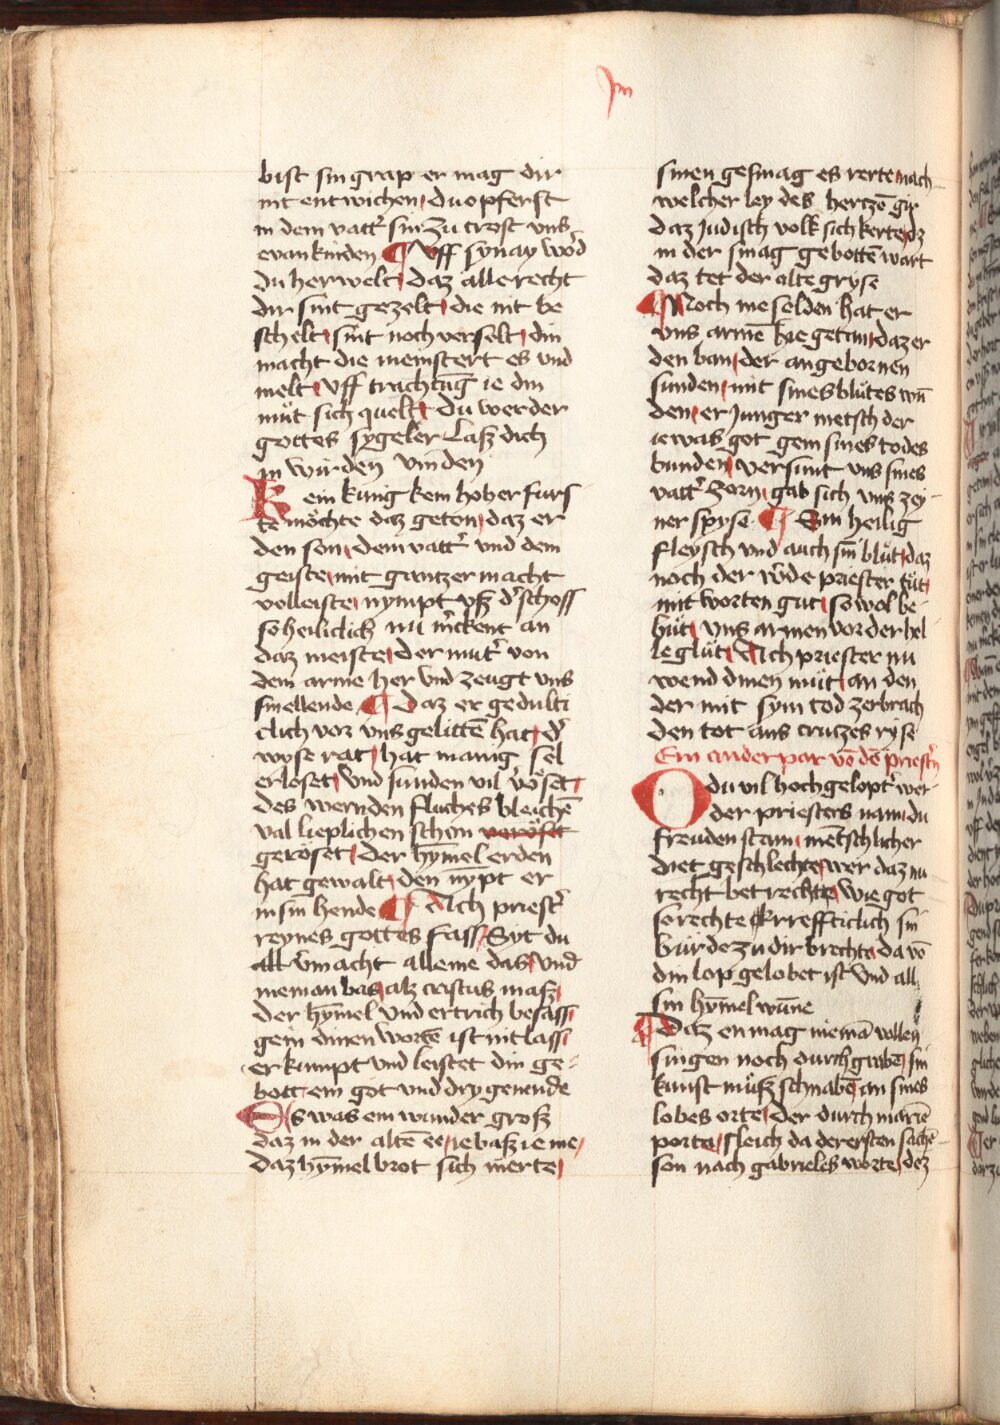 bist sin grap er mag dir
nit entwichen / du opferst
in dem vatt' sin zu trost vns
evan kinden ¶ Vff synay wo'd
du her welt / daz alle recht
dir sint gezelt / die nit be
schelt / sint noch verselt / din
macht die meinstert es vnd
melt / Vff trachtu̅g ie din
můt sich quelt / Du werder
gottes sygeler Lasz dich
in wurden vinden
Kein kunig kem hoher furs
te möchte daz geton / daz er
den son / dem vatt' vnd dem
geiste / mit gantzer macht
volleiste / nympt vsz d' schoss
so heiliclich nu m'ckent an
daz meiste / der mut' von
dem arme her vnd zeugt vns
sin ellende ¶ Daz er gedulti
clich vor vns gelitte̅ hat / d'
wyse rat / hat manig sel
erloset / Vnd sunden vil vöset /
des wernden fluches bleiche̅
val lieplichen schon
geröset / der hy̅mel erden
hat gewalt / den ny̅pt er
in sin hende ¶ Ach priest'
reynes gottes fass / Syt du
alt v̅macht alleine das / vnd
nieman bas / alz cristus masz /
der hy̅mel vnd ertrich besass /
gein dinen worte̅ ist nit lass /
er kumpt vnd leistet din ge-
bott / ein got vnd dry genende
Es was ein wunder grosz
daz in der alte̅ ee / ie basz ie me /
daz hy̅mel brot sich merte /
sinen gesmag es rerte / nach
welcher ley des hertze̅ gir
daz Judisch volk sich kerte / dz
in der smag gebotte̅ wart
daz tet der alte gryse
¶ Noch me selden hat er
vns arme̅ hie getan / daz er
den ban / der angebornen
sunden / mit sines blůtes wu̅
den / er Junger metsch der
ie was got gein sines todes
bunden / versunt vns sines
vatt' zorn / gab sich vns zei-
ner spyse ¶ Sin heilig
fleysch vnd auch sin blůt / daz
noch der w'de priester tůt /
mit worten gut / so wol be-
hůt / vns armen vor der hel
le glůt / Ach priester nu
wend dinen můt / an den
der mit sym tod zerbrach
den tot ans cruczes ryse
Ein ander par vo̅ de̅ priest'n
O du vil hochgelopt' wer-
der priesters nam / du
freuden stam / me̅tschlicher
diet geschlechte / wer daz nu
recht betrechte / wie got
so rechte kreffticlich sin
bürde zu dir brechte / da vo̅
din lop gelobet ist vnd all
sin hy̅mel wu̅ne
¶ Daz en mag niema̅ vollen
singen noch durch grabe̅ / sin
kunst můsz schnabe̅ / an sines
lobes orte / der durch marie̅
porte / sleich da der ersten sache̅
son nach gabrieles worte / dez